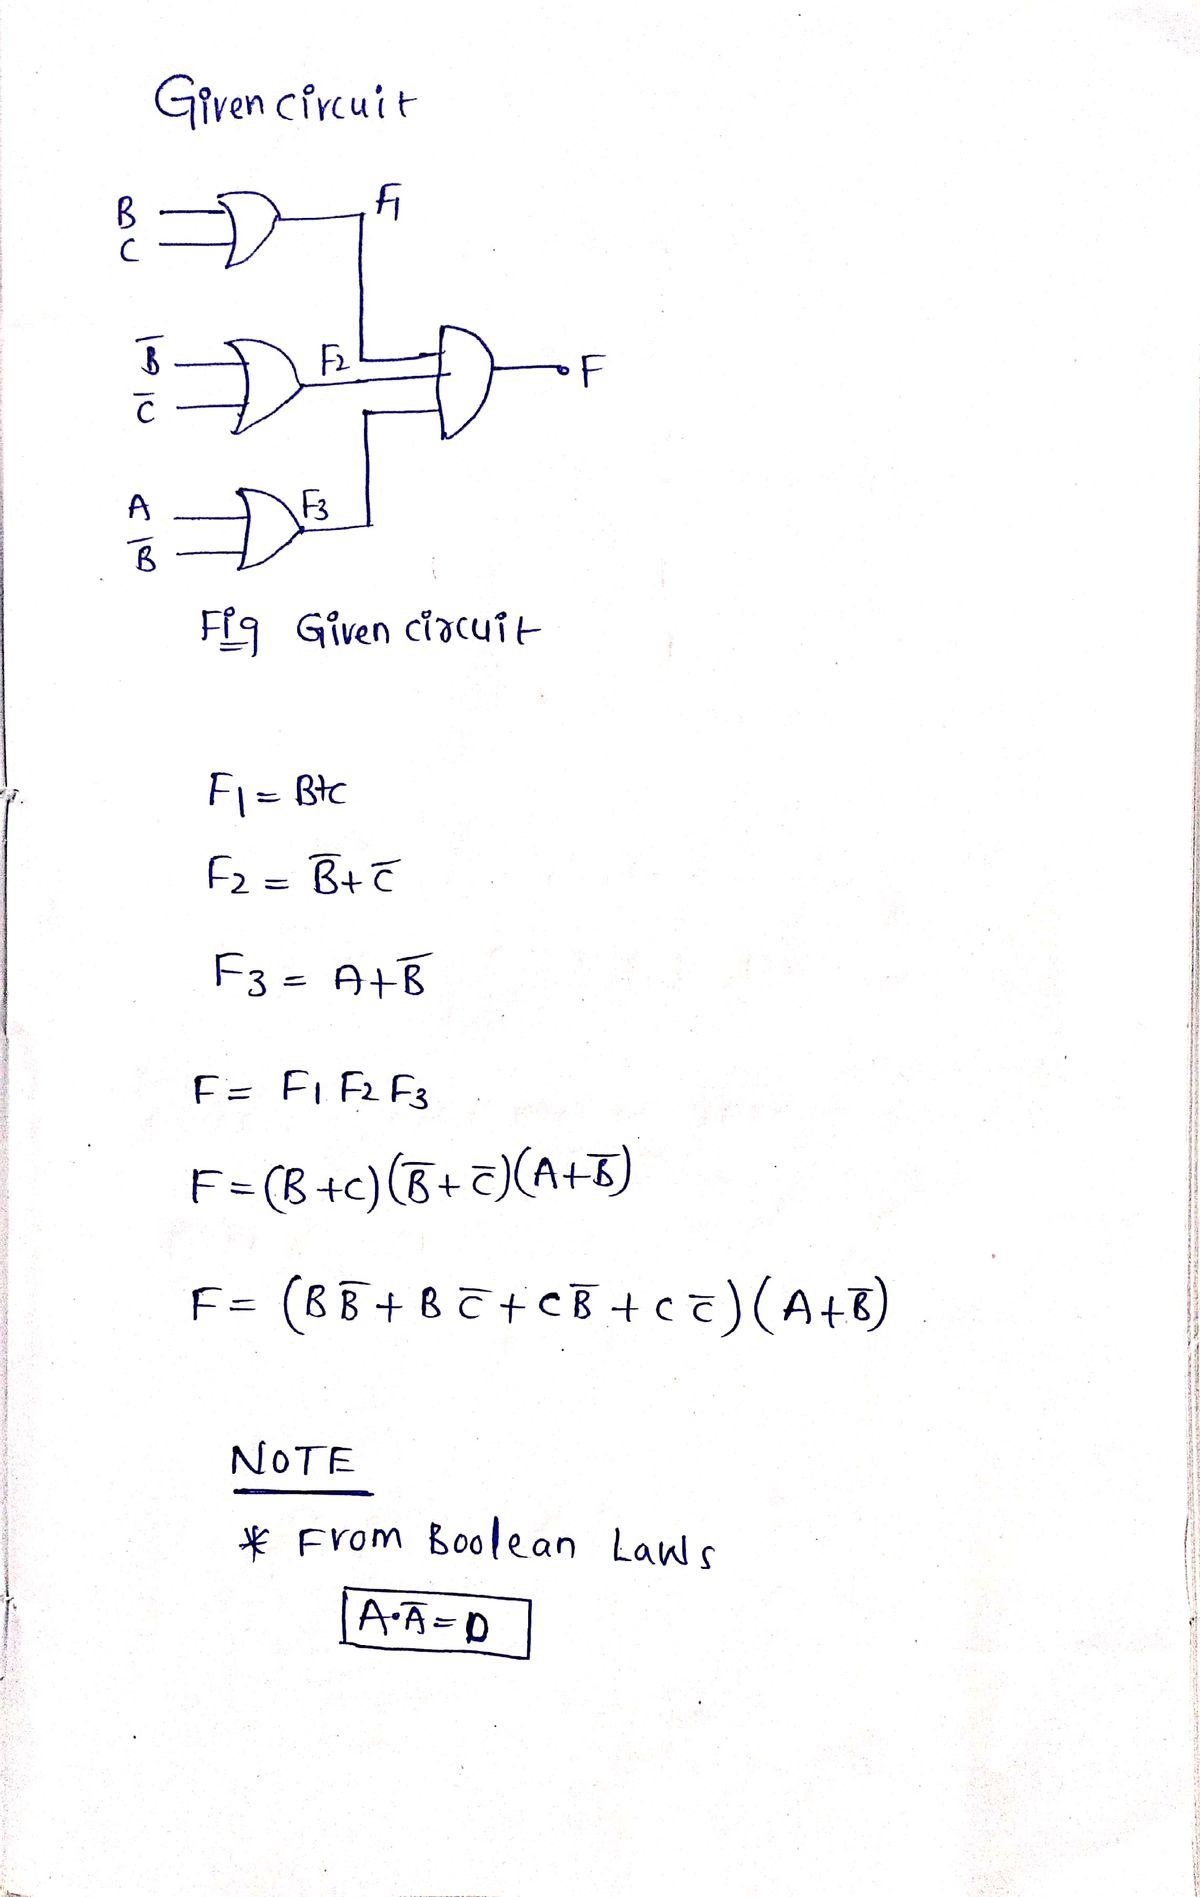 Given circuit
B
C
F1
B̅
C̅
F2
F
A
B̅
F3
Fig Given circuit
F1 = B+C
F2 = B̅+C̅
F3 = A+B̅
F = F1 F2 F3
F = (B+C)(B̅+C̅)(A+B̅)
F = (BB̅ + BC̅ + CB̅ + CC̅)(A+B̅)
NOTE
* From Boolean Laws
A·A̅=0